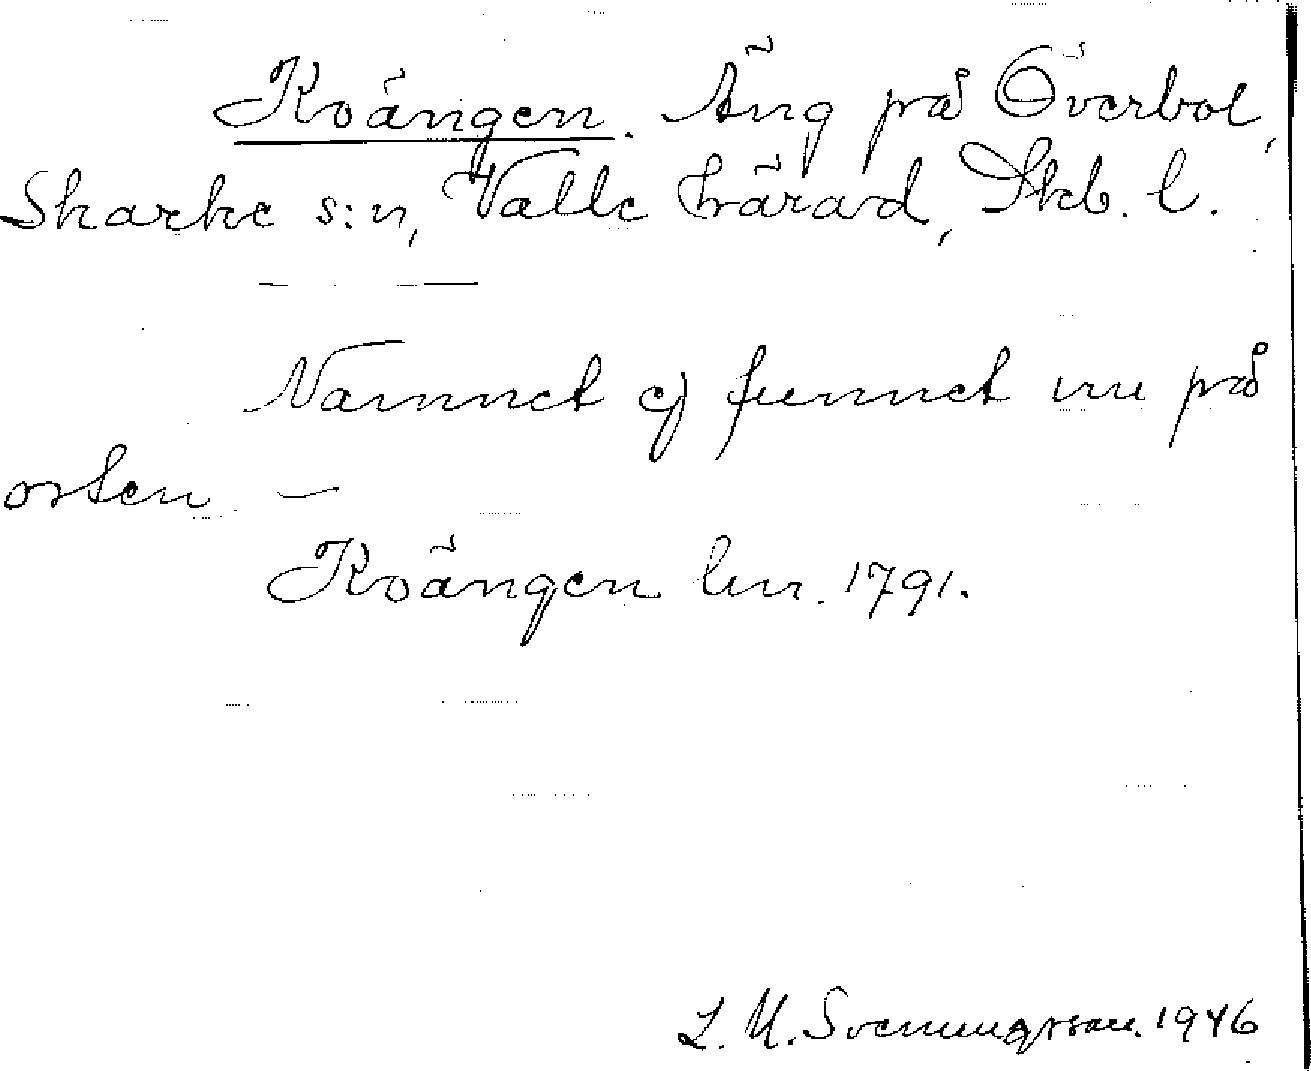 Koängen. Äng på Överbol,
Skarke s:n, Valle härad, Skb. l.
Namnet ej funnet nu på
orten —
Koängen lm. 1791.
L. M. Svenungsson. 1946